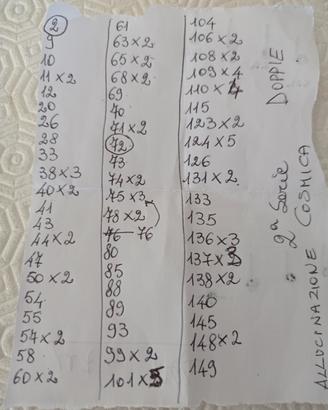 2
9
10
11×2
12
20
26
28
33
38×3
40×2
41
43
44×2
47
50×2
54
55
57×2
58
60×2
61
63×2
65×2
68×2
69
70
71×2
72
73
74×2
75×3
78×2
76 76
80
85
88
89
93
99×2
101×3
104
106×2
108×2
109×4
110×4
115
123×2
124×5
126
131×2
133
135
136×3
137×3
138×2
140
145
148×2
149
ALLUCINAZIONE COSMICA
2ª Serie DOPPIE